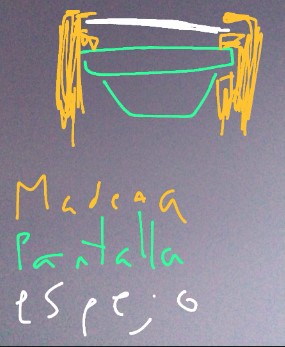 Madera
Pantalla
espejo